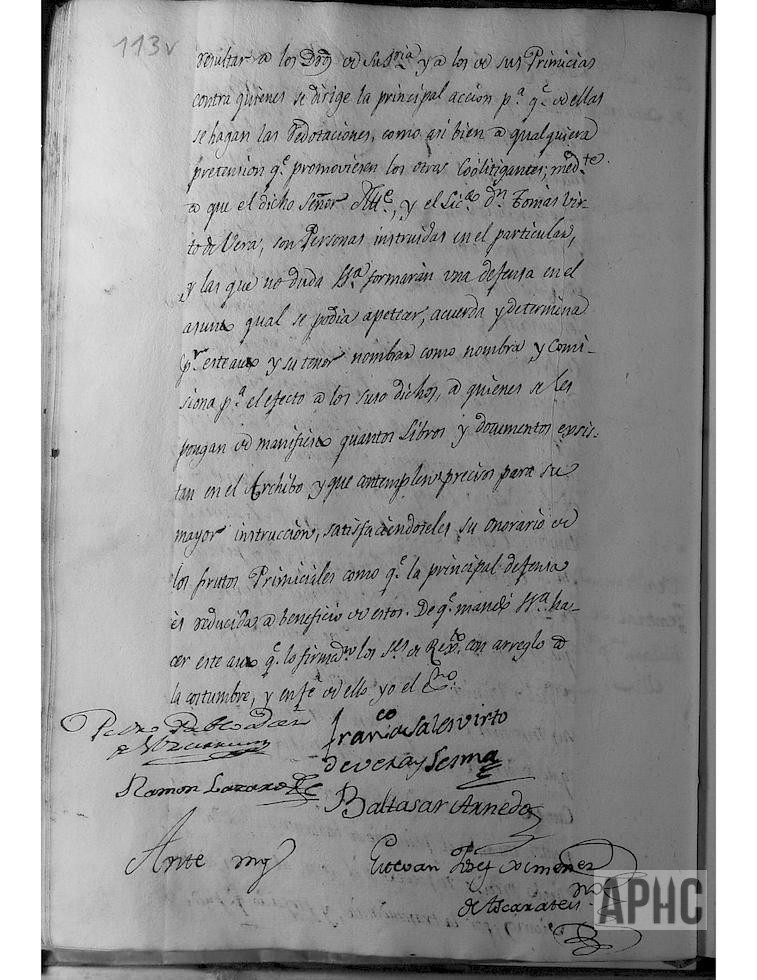 113v
resultar a los Dros de Su Sria y a los de sus Primicias
contra quienes se dirige la principal accion pa. qe. de ellas
se hagan las redotaciones, como asi bien a qualquiera
pretension qe. promoviesen los otros Coolitigantes; medte.
a que el dicho Señor Alle., y el Licdo. dn. Tomas Vir-
to de Vera, son Personas instruidas en el particular,
y las que no duda Sª. formarán una defensa en el
asunto qual se podia apetecer, acuerda y determina
pr. este auto y su tenor nombrar como nombra y comi-
siona pa. el efecto a los suso dichos, a quienes se les
pongan de manifiesto quantos Libros y documentos exsis-
tan en el Archibo y que contemplen precisos para su
mayor instrucción, satisfaciendoseles su onorario de
los frutos Primiciales como qe. la principal defensa
es reducida a beneficio de estos. De qe. mandó Sª. ha-
cer este auto qe. lo firmaron los Ses. de Rexto. con arreglo a
la costumbre, y en fe. de ello yo el Esno.
Pedro Pablo
Franco. de Sales Virto
de Vera y Lerma
Ramon Lazaro
Baltasar Arnedo
Ante my
Estevan Josef Ximenez
de Ascarateis
APHC